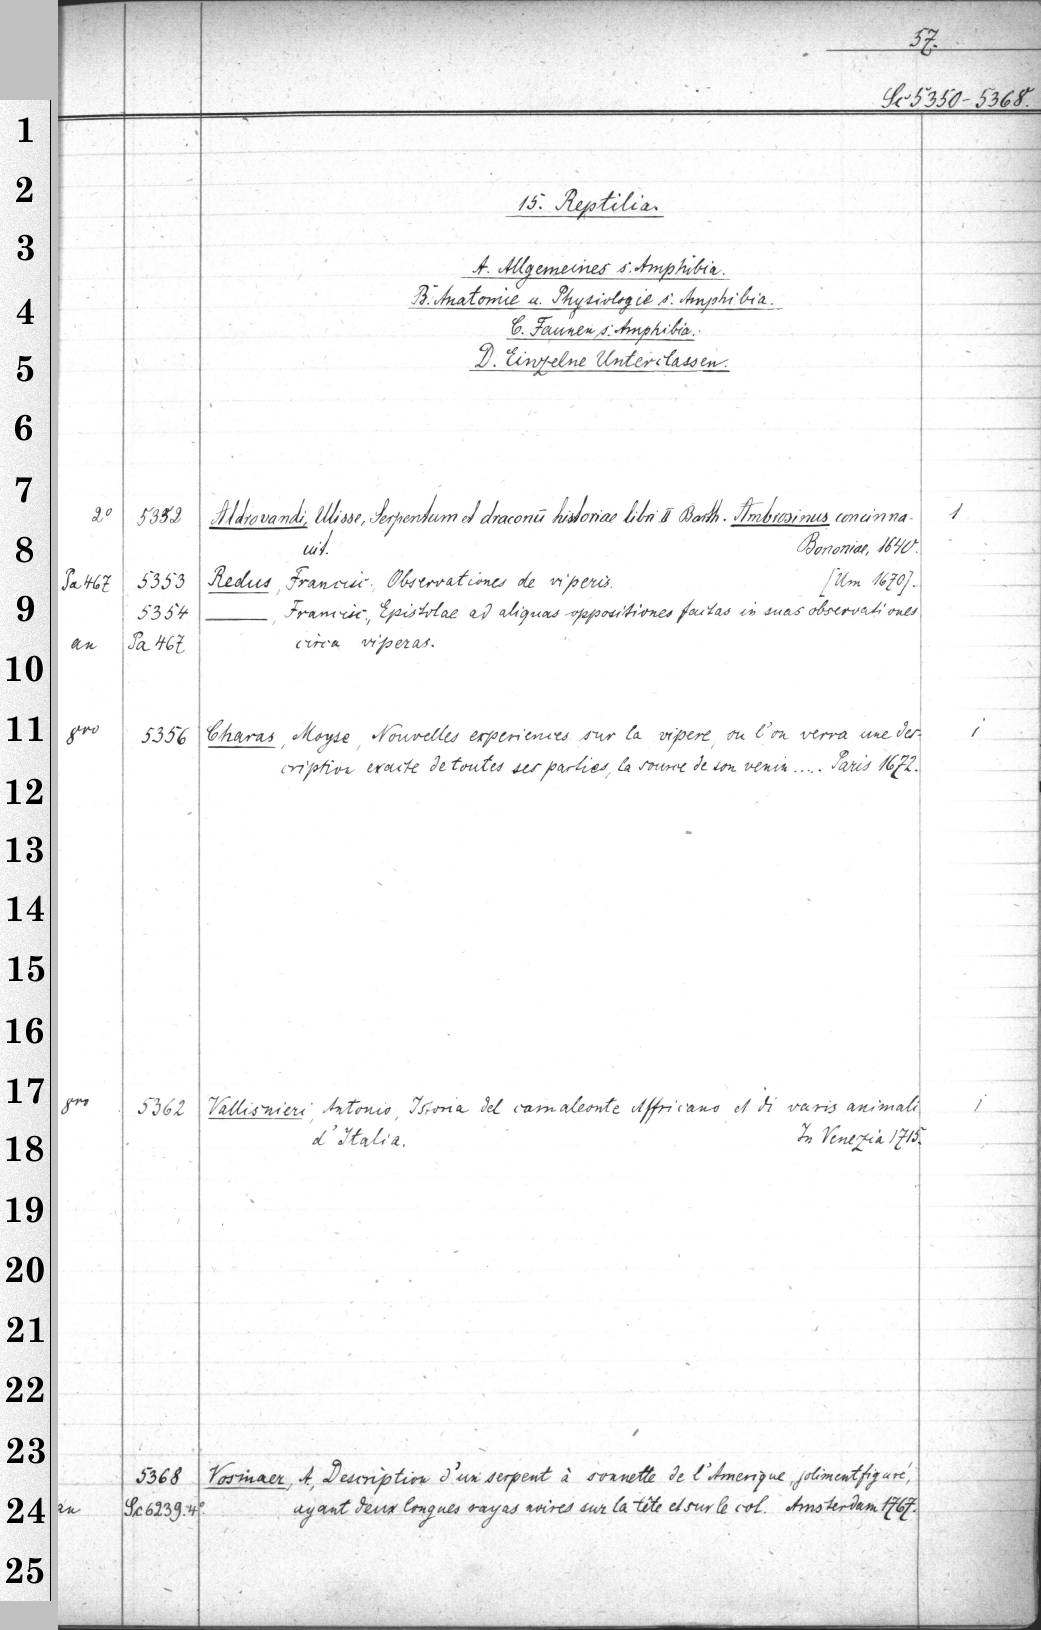 57.
Sc 5350-5368.
15. Reptilia.
A. Allgemeines s. Amphibia.
B. Anatomie u. Physiologie s. Amphibia.
C. Faunen s. Amphibia.
D. Einzelne Unterclassen.
2° 5352 Aldrovandi, Ulisse, Serpentum et draconū historiae libri II Barth. Ambrosinus concinna- 1
uit. Bononiae, 1640.
Pa 467 5353 Redus, Francisc., Observationes de viperis. [Um 1670].
5354 ———, Francisc., Epistolae ad aliquas oppositiones factas in suas observationes
an Pa 467 circa viperas.
8vo 5356 Charas, Moyse, Nouvelles experiences sur la vipere, ou l'on verra une des- 1
cription exacte de toutes ses parties, la source de son venin ..... Paris 1672.
8vo 5362 Vallisnieri, Antonio, Istoria del camaleonte Affricano et di varis animali 1
d'Italia. In Venezia 1715.
5368 Vosmaer, A., Description d'un serpent à sonnette de l'Amerique, joliment figuré,
an Sc 6239.4° ayant deux longues rayas noires sur la tête et sur le col. Amsterdam 1767.
1
2
3
4
5
6
7
8
9
10
11
12
13
14
15
16
17
18
19
20
21
22
23
24
25